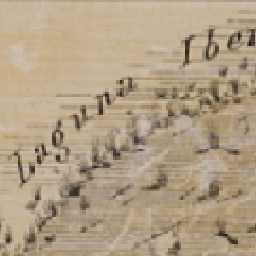 Laguna Iber